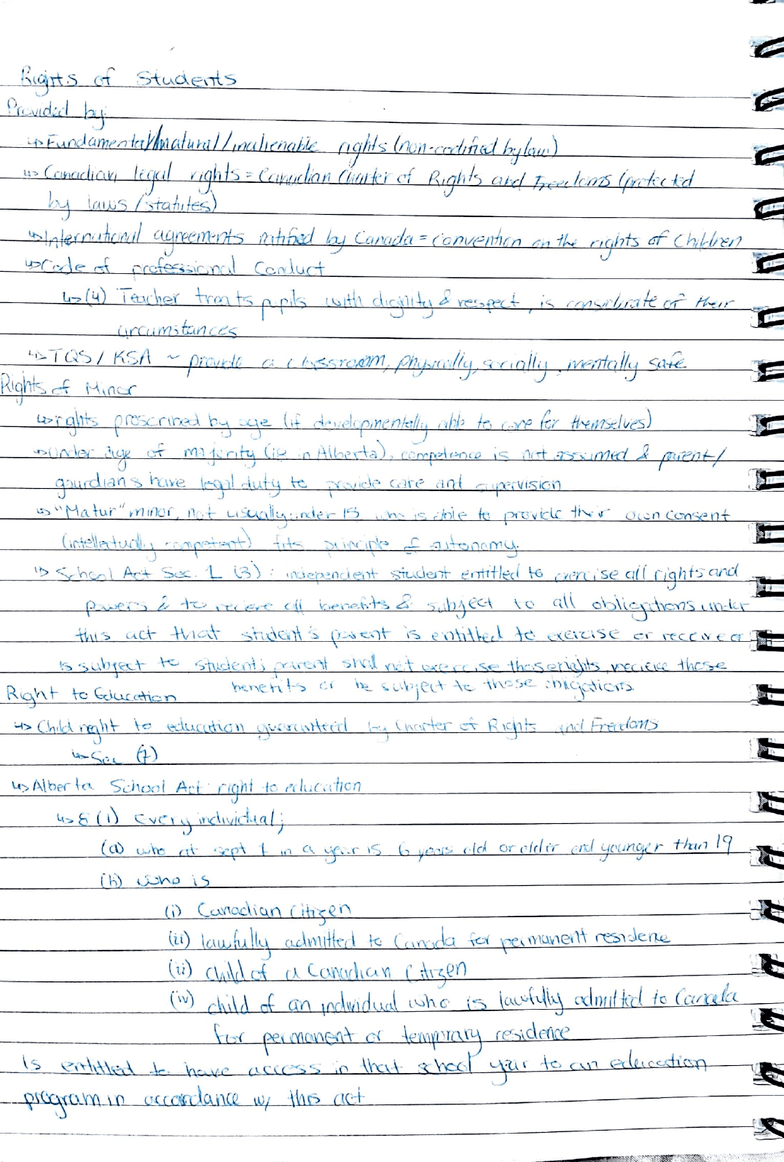 Rights of Students
Provided by:
↳ Fundamental/natural/inalienable rights (non-codified by law)
↳ Canadian legal rights = Canadian Charter of Rights and Freedoms (protected
by laws/statutes)
↳ International agreements ratified by Canada = Convention on the rights of Children
↳ Code of professional Conduct
↳ (4) Teacher treats pupils with dignity & respect, is considerate of their
circumstances
↳ TQS/KSA ~ provide a classroom, physically, socially, mentally safe
Rights of Minor
↳ rights proscribed by age (if developmentally able to care for themselves)
↳ Under age of majority (in Alberta), competence is not assumed & parent/
gaurdians have legal duty to provide care and supervision
↳ "Matur" minor, not usually under 15 who is able to provide their own consent
(intellectually competent) fits principle of autonomy.
↳ School Act Sec. 1 (3): independent student entitled to exercise all rights and
powers & to receive all benefits & subject to all obligations under
this act that student's parent is entitled to exercise or receive or
is subject to student's parent shall not exercise those rights, receive those
benefits or be subject to those obligations
Right to Education
↳ Child right to education guaranteed by Charter of Rights and Freedoms
↳ Sec (7)
↳ Alberta School Act: right to education
↳ 8 (1) Every individual;
(a) who at sept 1 in a year is 6 years old or older and younger than 19
(b) who is
(i) Canadian Citizen
(ii) lawfully admitted to Canada for permanent residence
(ii) child of a Canadian Citizen
(iv) child of an individual who is lawfully admitted to Canada
for permanent or temporary residence
is entitled to have access in that school year to an education
program in accordance w/ this act